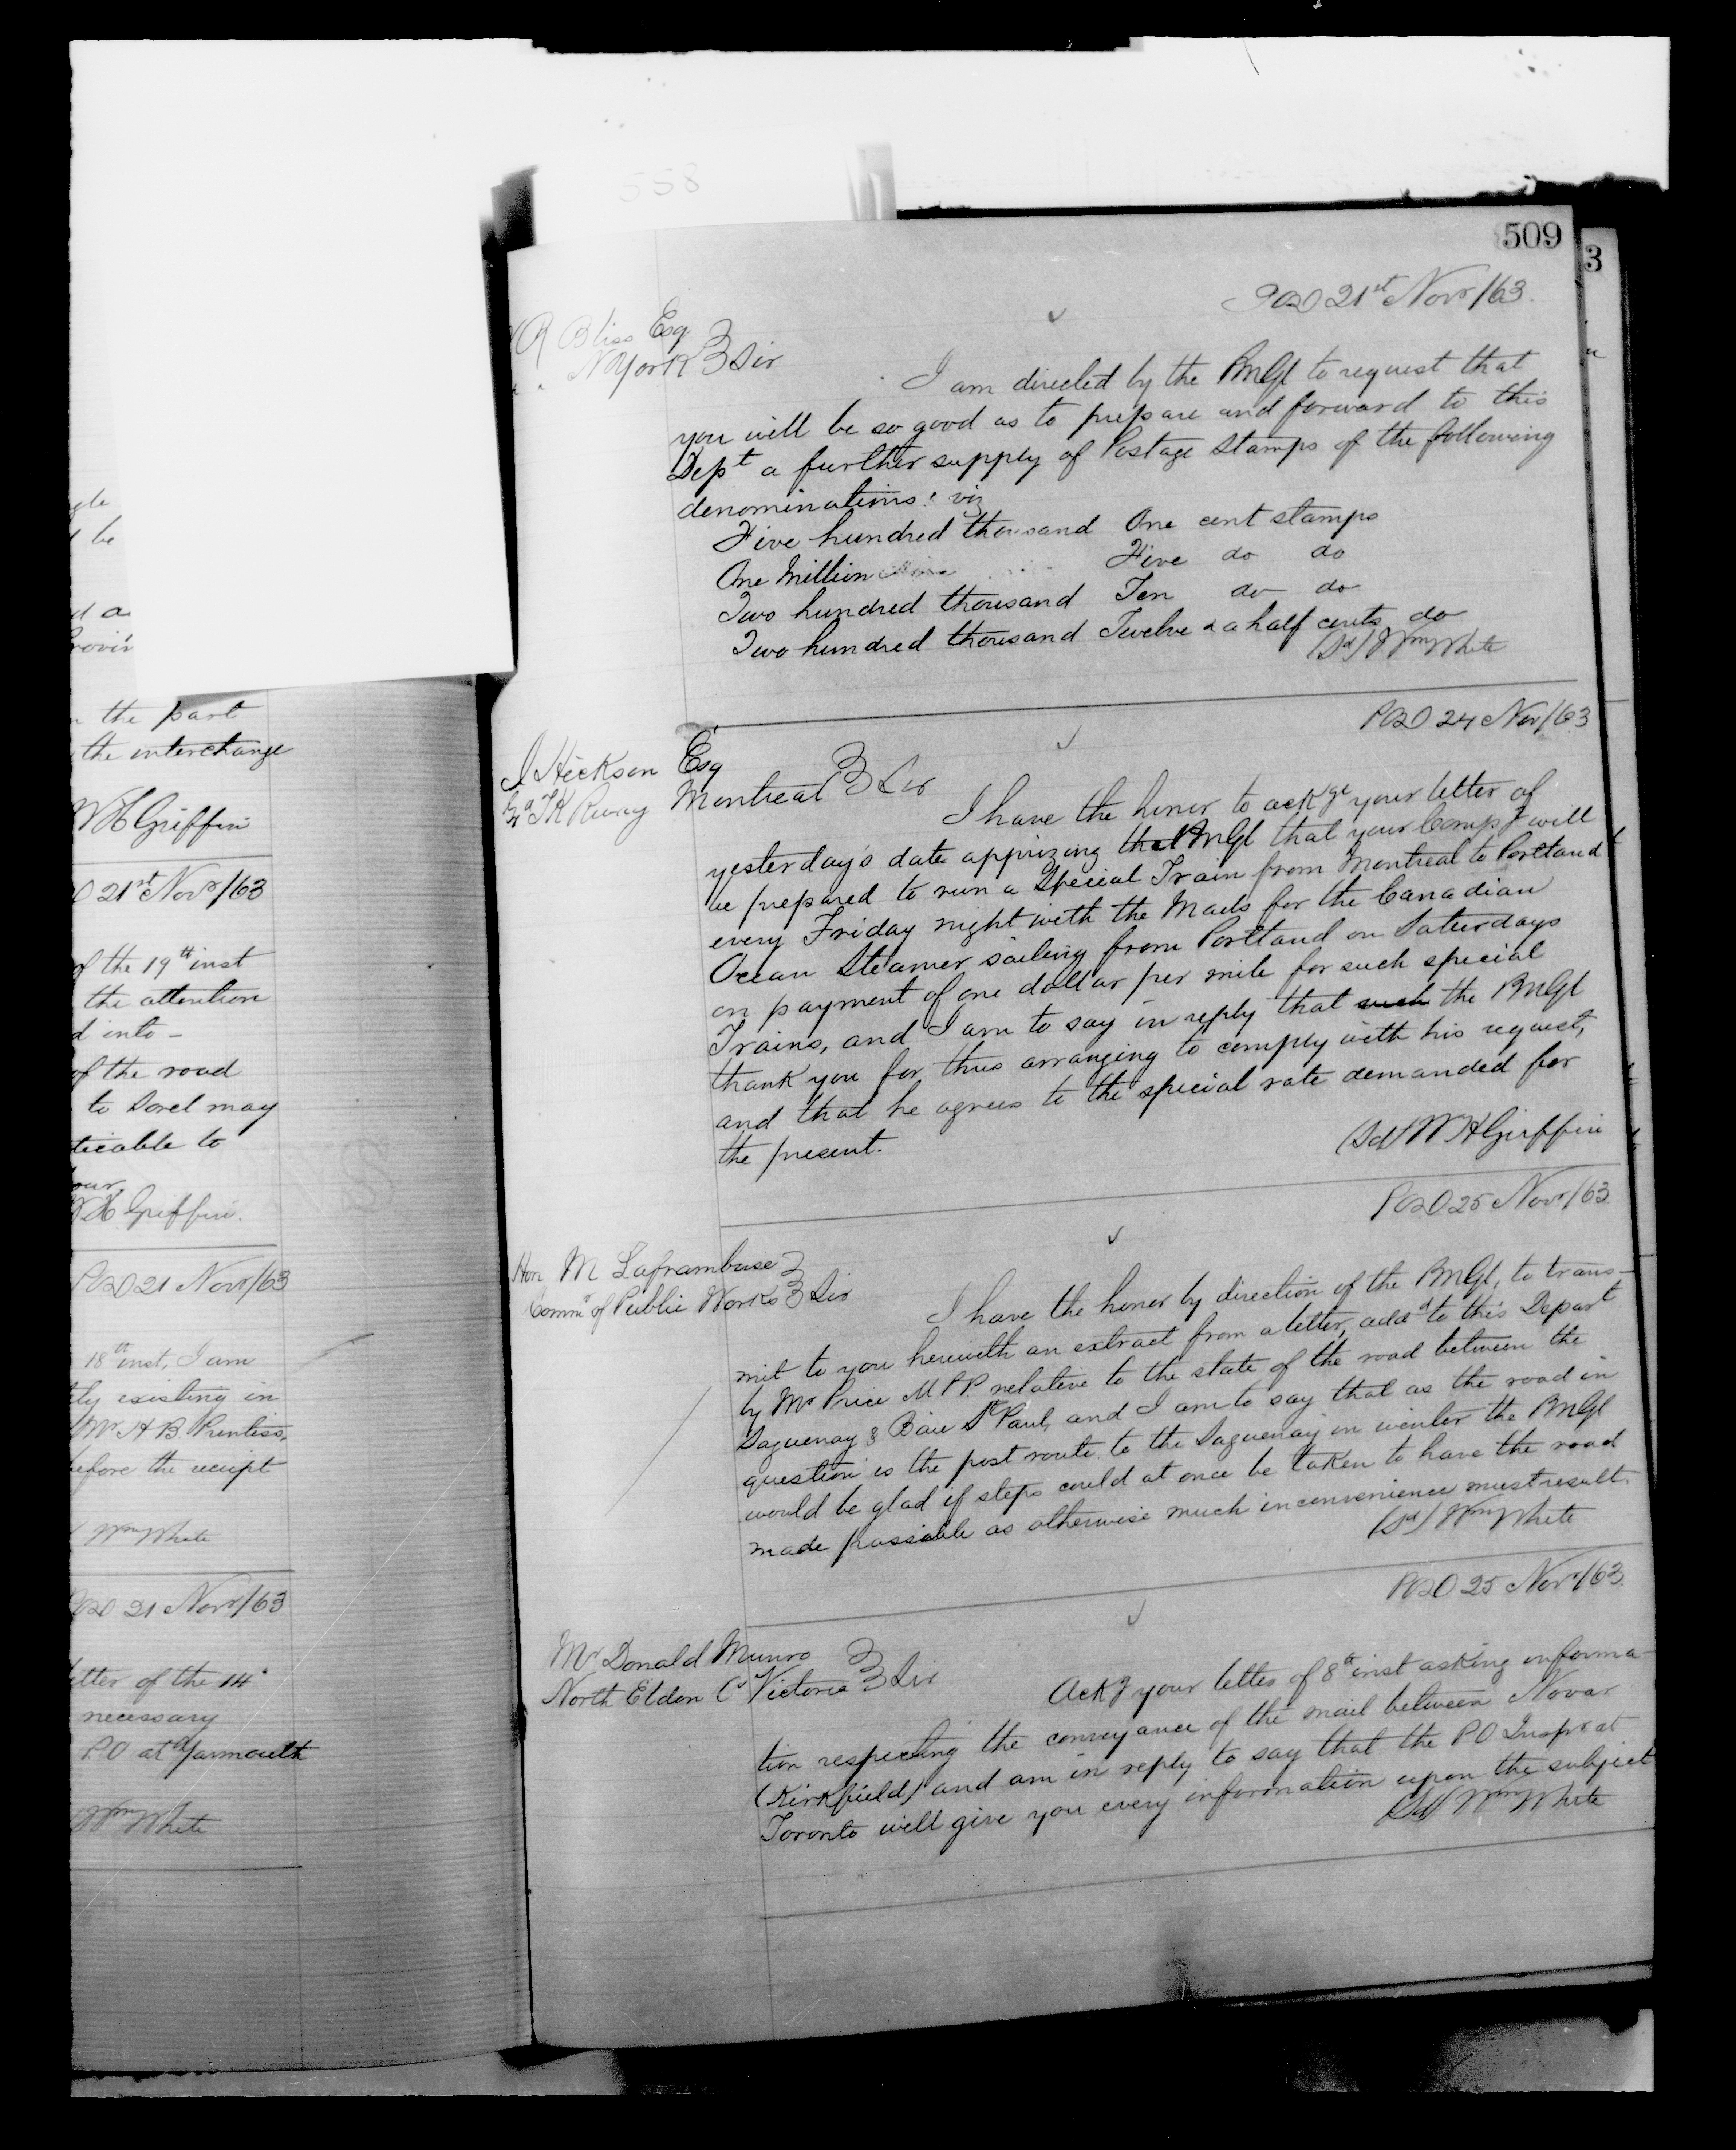 gle
be
d a
Provin
n the part
the interchange
W H Griffin
21st Novr/63
of the 19th inst
the attention
d into -
of the road
to Sorel may
ticable to
our.
H Griffin.
POD 21 Novr/63
18th inst, I am
tly existing in
Mr H B Prentiss,
before the receipt
Wm White
POD 21 Novr/63
etter of the 14"
necessary
PO at Yarmouth
Wm White
558
509
3
POD 21st Novr/63.
R Bliss Esq
N York } Sir
I am directed by the PMGl to request that
you will be so good as to prepare and forward to this
Dept a further supply of Postage Stamps of the following
denominations: viz
Five hundred thousand One cent stamps
One Million Five do do
Two hundred thousand Ten do do
Two hundred thousand Twelve & a half cents do
(Sd) Wm White
POD 24 Nov/63
J Hickson Esq
Gd TK Rway Montreal } Sir
I have the honor to ackge your letter of
yesterday's date apprizing the PMGl that your Compy will
be prepared to run a Special Train from Montreal to Portland
every Friday night with the Mails for the Canadian
Ocean Steamer sailing from Portland on Saturdays
on payment of one dollar per mile for such special
Trains, and I am to say in reply that such the PMGl
thank you for thus arranging to comply with his request,
and that he agrees to the special rate demanded for
the present.
(Sd) W H Griffin
POD 25 Novr/63
Hon M Laframboise }
Commr of Public Works } Sir
I have the honor by direction of the PMGl, to trans-
mit to you herewith an extract from a letter, addd to this Depart
by Mr Price M P P. relative to the state of the road between the
Saguenay & Baie St Paul, and I am to say that as the road in
question is the post route to the Saguenay in winter the PMGl
would be glad if steps could at once be taken to have the road
made passable as otherwise much inconvenience must result.
(Sd) Wm White
POD 25 Novr/63.
Mr Donald Munro }
North Eldon Co Victoria } Sir
Ackg your letter of 8th inst asking informa-
tion respecting the conveyance of the mail between Novar
(Kirkfield) and am in reply to say that the PO Inspr at
Toronto will give you every information upon the subject
(Sd) Wm White